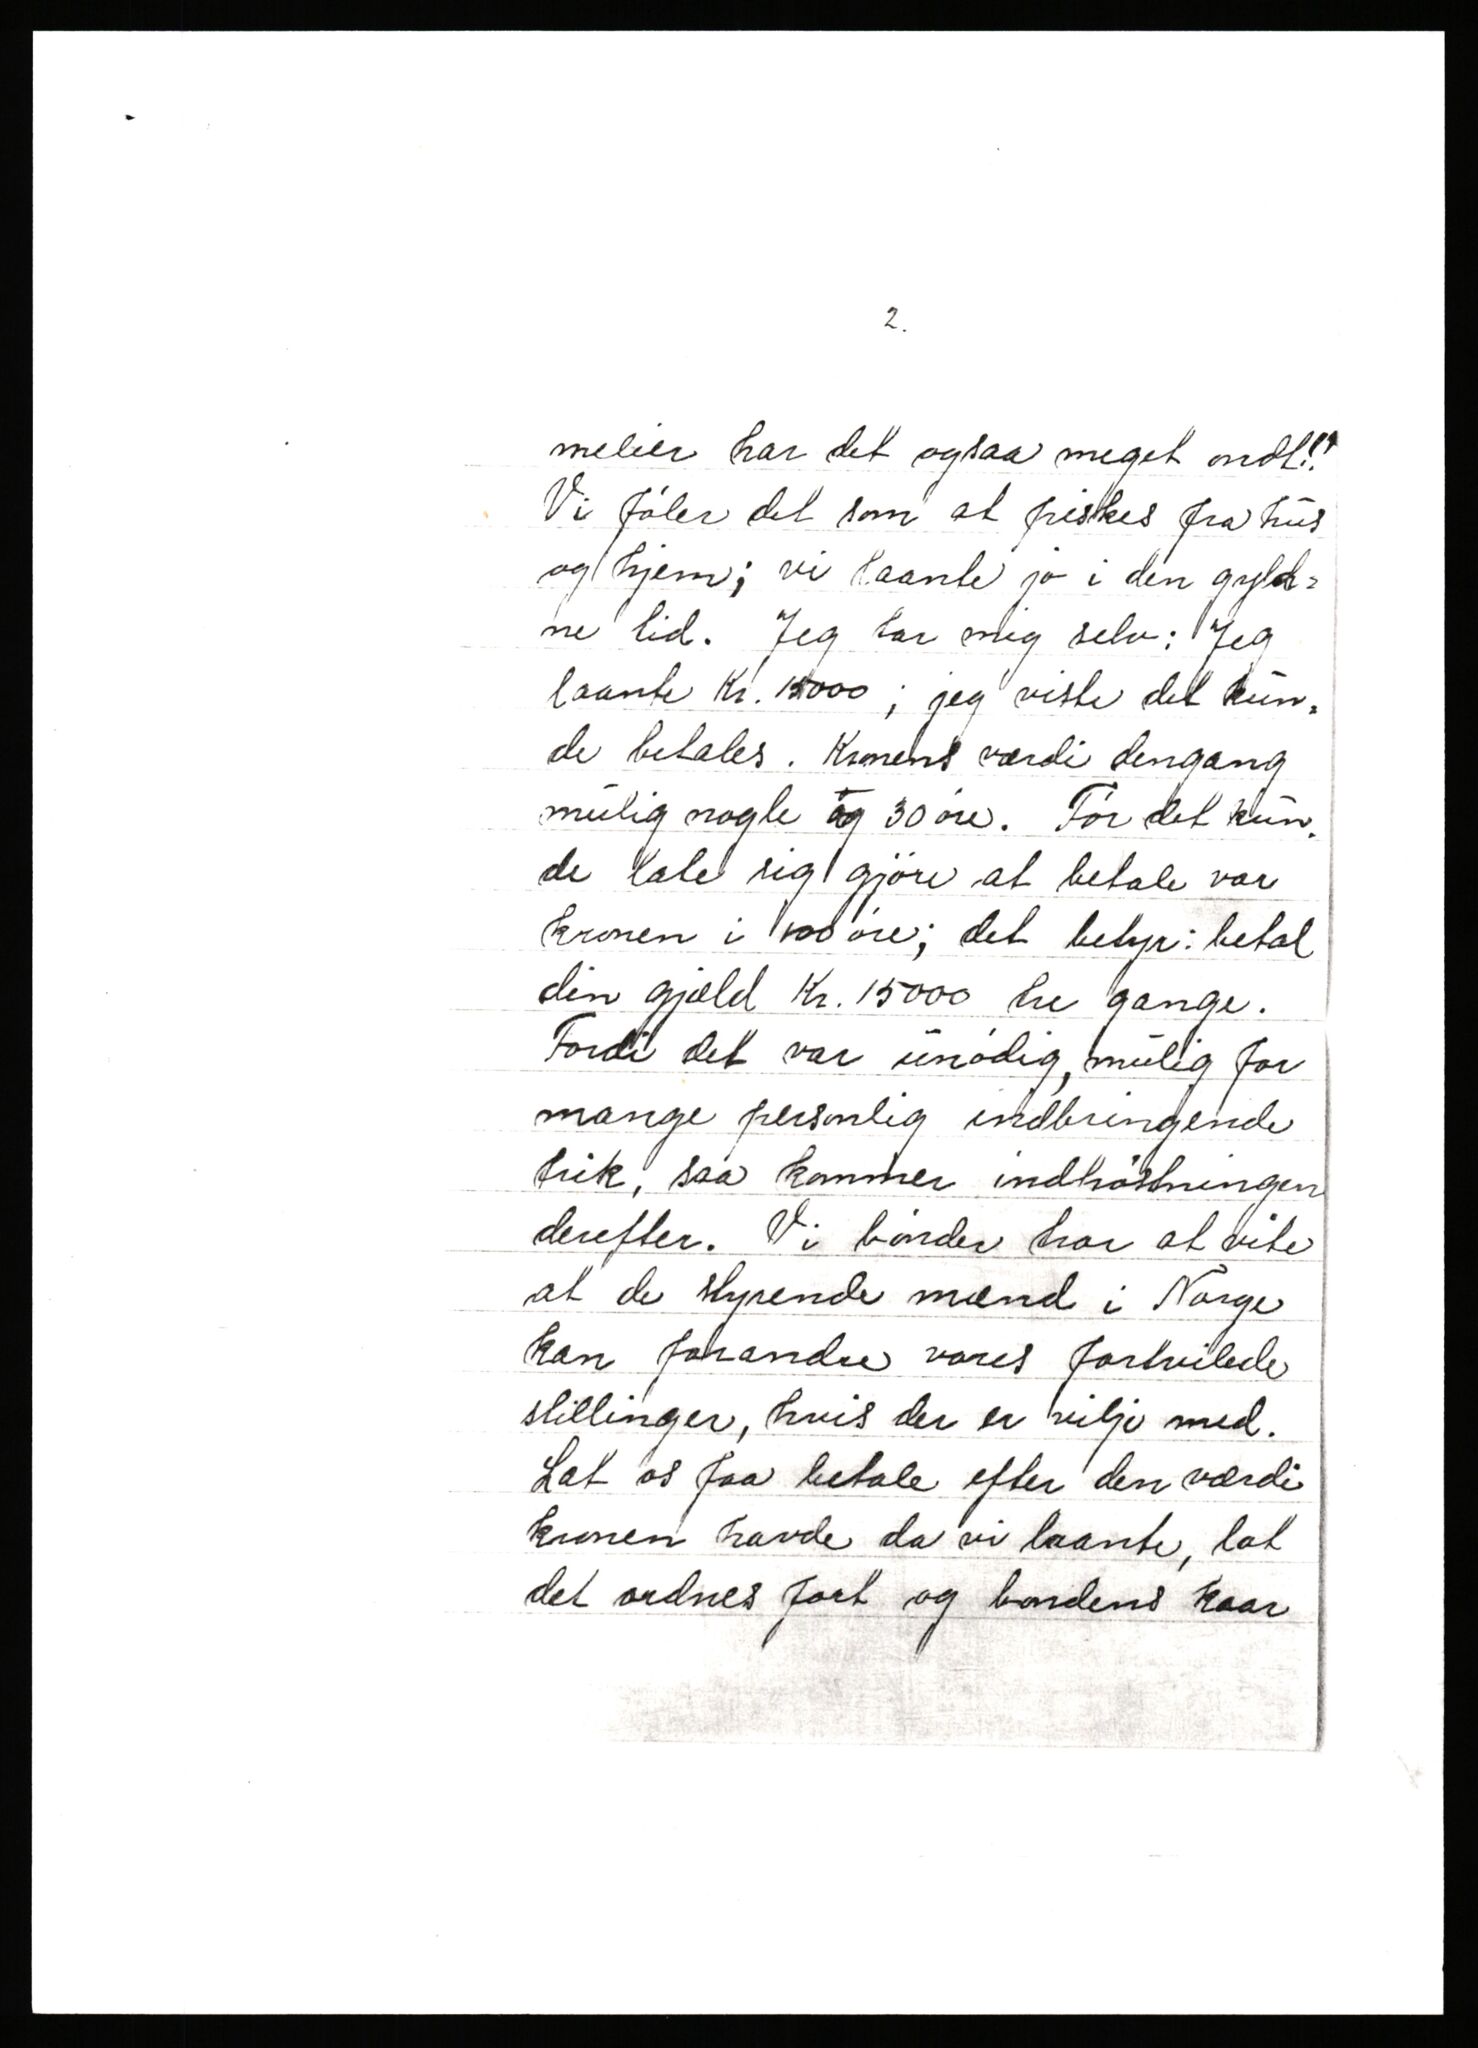 2.
melier har det ogsaa meget ondt!!
Vi føler det som at friskes fra hus
og hjem; vi laante jo i den gyld=
ne tid. Jeg tar mig selv: Jeg
laante Kr. 15000; jeg viste det kun=
de betales. Kronens værdi dengang
mulig nogle og 30 øre. Før det kun=
de late sig gjøre at betale var
kronen i 100 øre; det betyr: betal
din gjæld Kr. 15000 tre gange.
Fordi det var unødig, mulig for
mange personlig indbringende
trik, saa kommer indhøstningen
derefter. Vi bønder har at vite
at de styrende mænd i Norge
kan forandre vores fortvilede
stillinger, hvis der er vilje med.
Lat os faa betale efter den værdi
kronen havde da vi laante, lat
det ordnes fort og bondens kaar